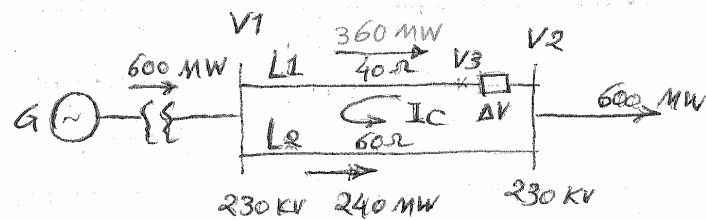 V1
360 MW
V3
V2
600 MW
L1
40Ω
G
~
Ic
ΔV
600 MW
L2
60Ω
230 KV
240 MW
230 KV